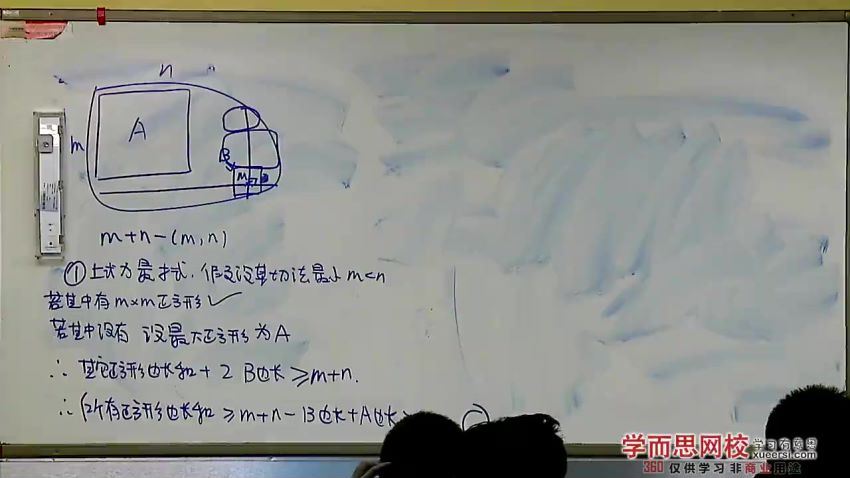 n
m
A
B
M
m+n-(m,n)
①上式为最小式.假设没某切法最少 m<n
若其中有m×m正方形✓
若其中没有 设最大正方形为A
∴ 其它正方形边长和+2B边长≥m+n.
∴ 所有正方形边长和≥m+n-B边长+A边长
学而思网校
学习有意思
xueersi.com
360 仅供学习 非商业用途